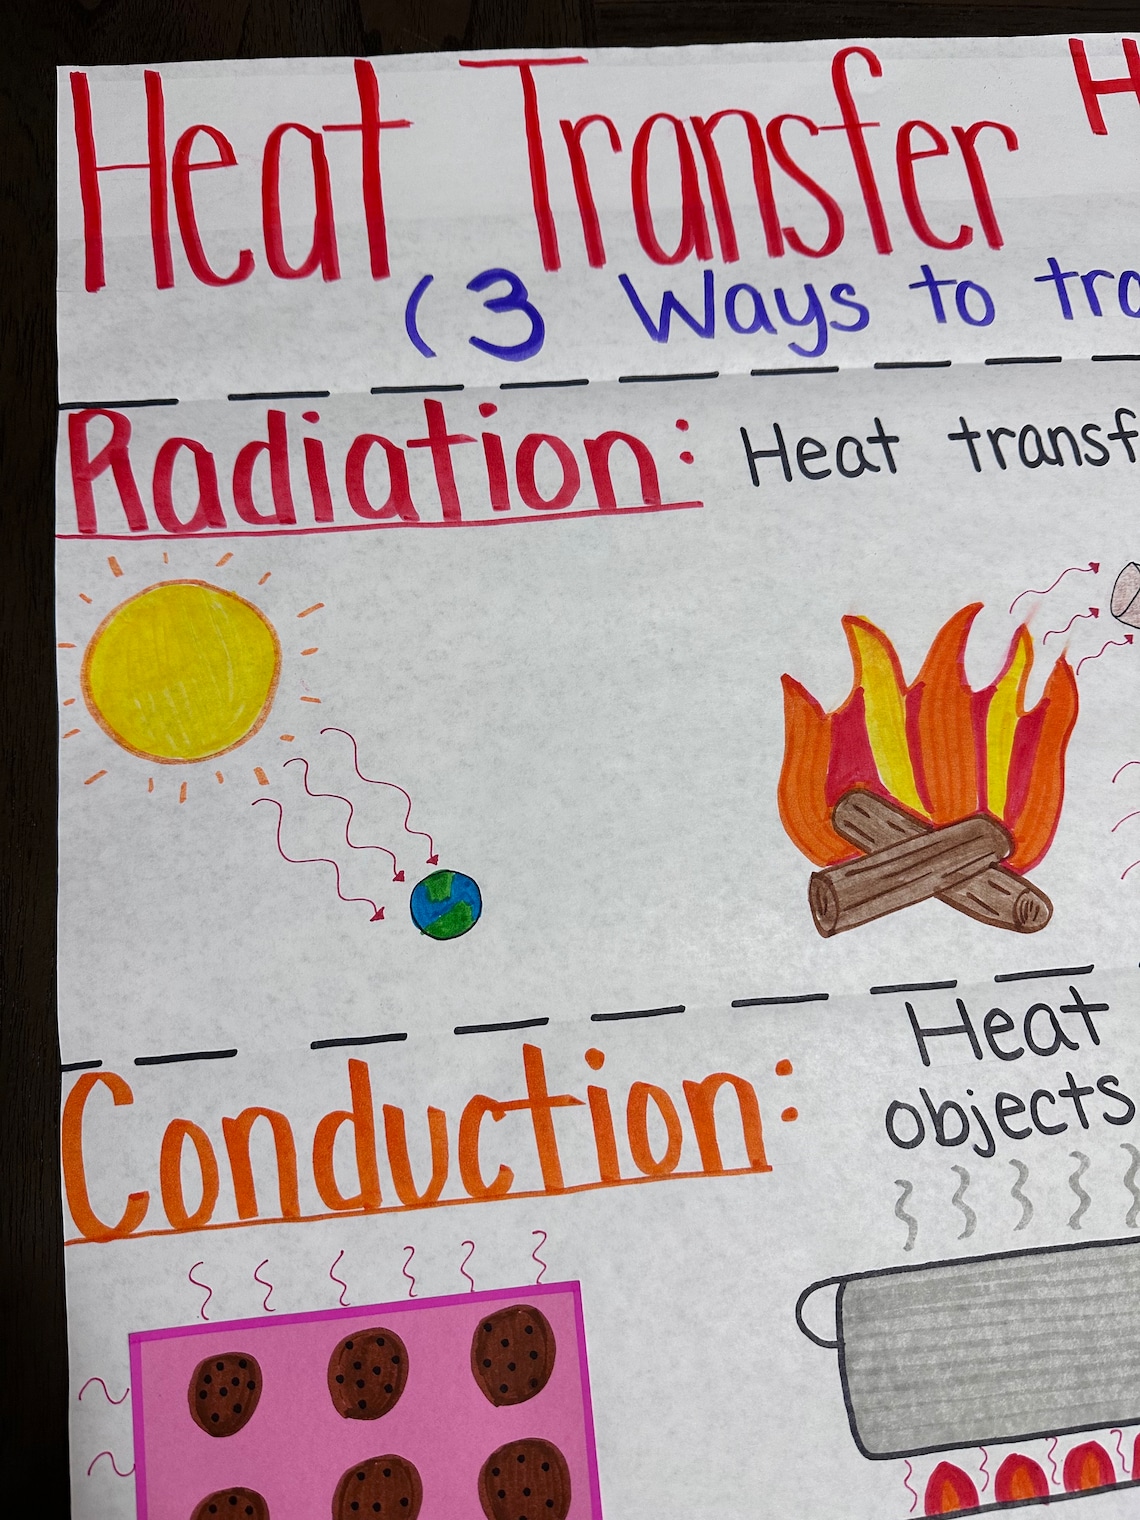 Heat Transfer H
(3 Ways to tra
Radiation: Heat transf
Conduction: Heat
objects